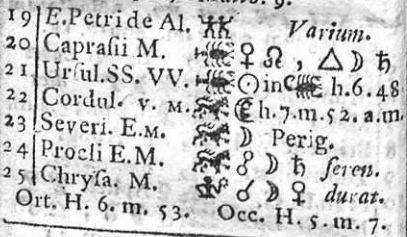 19 E. Petri de Al. ♊ Varium.
20 Caprasii M. ♋ ♀ ☊, △ ☽ ♄
21 Ursul. SS. VV. ♋ ☉ in ♏ h. 6. 48
22 Cordul. v. M. ♌ ☾ h. 7. m. 52. a. m.
23 Severi. E. M. ♌ ☽ Perig.
24 Procli E. M. ♌ ☍ ☽ ♄ seren.
25 Chrysa. M. ☌ ☽ ♀ durat.
Ort. H. 6. m. 53. Occ. H. 5. m. 7.